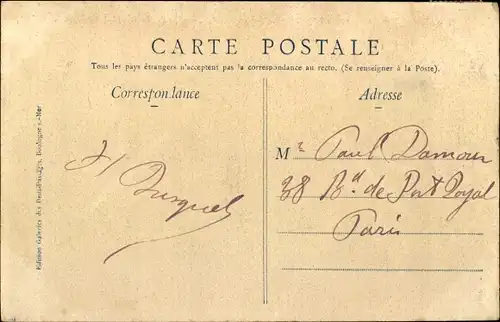 CARTE POSTALE
Tous les pays étrangers n'acceptent pas la correspondance au recto. (Se renseigner à la Poste).
Correspondance
Adresse
H
Mr Paul Damour
38 Bd de Port Royal
Paris
Edition Galeries des Postal-Passages, Boulogne s.-Mer